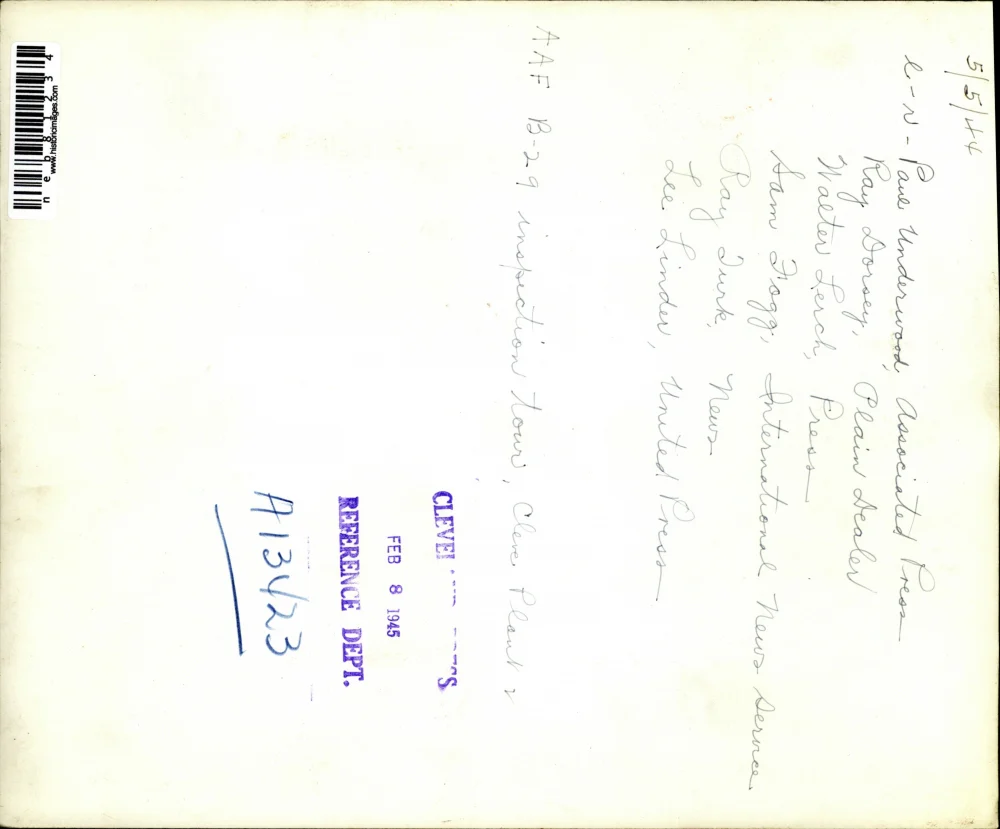 5/5/44
l-r - Paul Underwood, Associated Press
Ray Dorsey, Plain Dealer
Walter Lerch, Press
Sam Fogg, International News Service
Ray Turk, News
Lee Linder, United Press
AAF B-29 inspection tour, Cleve Plant 2
FEB 8 1945
REFERENCE DEPT.
A13423
www.historicimages.com
neb81234